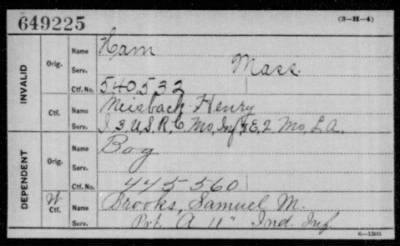 649225
(3-H-4)
INVALID
Orig.
Name Ham
Serv. Mass.
Ctf. No. 540,532
Ctf.
Name Meisback Henry
Serv. I 3, U.S.R.C. Mo. Inf & E, 2 Mo. L.A.
DEPENDENT
Orig.
Name Boy
Serv.
Ctf. No. 445560
W Ctf.
Name Brooks, Samuel M.
Serv. Pvt. A 11" Ind. Inf.